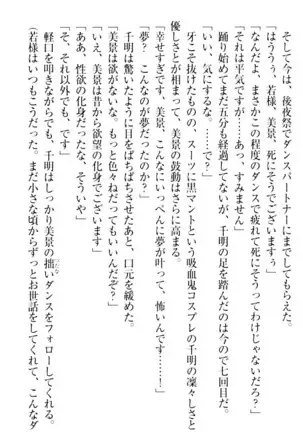 そして今は、後夜祭でダンスパートナーにまでしてもらえた。
「はううぅ、若様、美景、死にそうでございますぅ」
「なんだよ、まさかこの程度のダンスで疲れて死にそうってわけじゃないだろ？」
「それは平気ですが……あっ、すみません」
踊り始めてまだ五分も経過してないが、千明の足を踏んだのは今ので七回目だ。
「いい、気にするな。……で？」
牙こそ抜けたものの、スーツに黒マントという吸血鬼コスプレの千明の凜々しさと
優しさとが相まって、美景の鼓動はさらに高まる。
「幸せすぎです、美景、こんなにいっぺんに夢が叶って、怖いんです……！」
「夢？　こんなのが夢だったのか？」
千明は驚いたように目をぱちぱちさせたあと、口元を緩めた。
「いえ、美景は昔から欲望の化身でございます」
「美景は欲がないな。もっと色々ねだってもいいんだぞ？」
「ああ、性欲の化身だったな、そういや」
「そ、それ以外でも、です」
軽口を叩きながらでも、千明はしっかり美景の拙いダンスをフォローしてくれる。
（若様はいつもこうだった。まだ小さな頃からずっとお世話をしてくれて、こんなダ